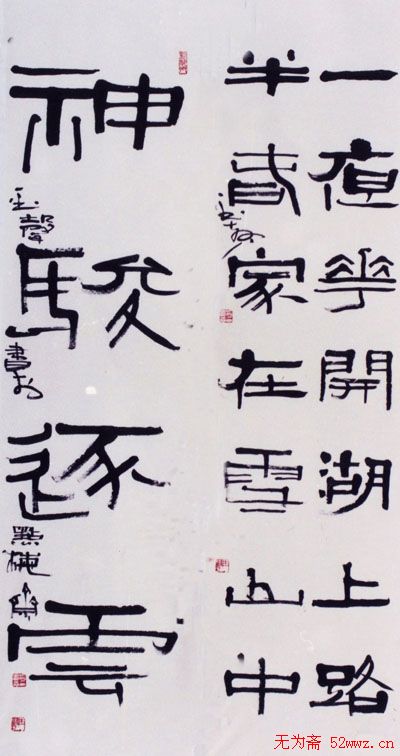 一夜華開湖上路
半春家在雪山中
神駿逐雲
无为斋 52wwz.cn